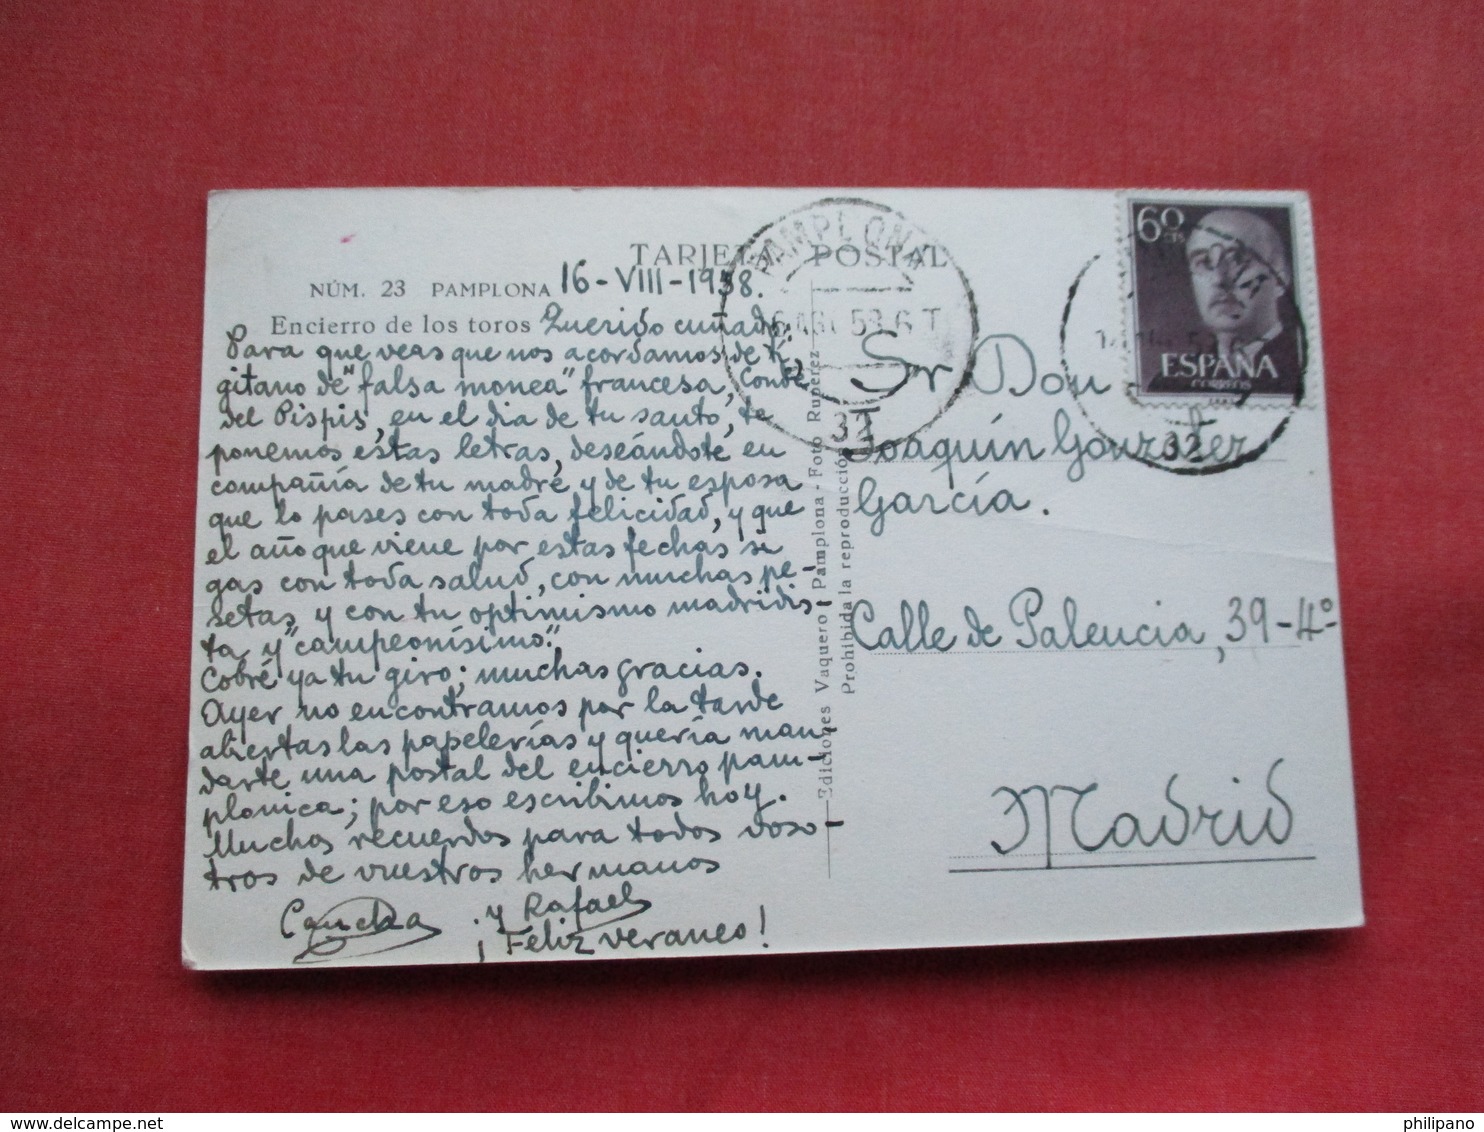 TARJETA POSTAL
NÚM. 23 PAMPLONA 16-VIII-1958.
Encierro de los toros Querido cuñado:
Para que veas que nos acordamos de ti,
gitano de "falsa monea" francesa, conde
del Pispis, en el dia de tu santo, te
ponemos estas letras, deseándote en
compañía de tu madre y de tu esposa
que lo pases con toda felicidad, y que
el año que viene por estas fechas si
gas con toda salud, con muchas pe-
setas y con tu optimismo madridis-
ta y "campeonísimo".
Cobré ya tu giro; muchas gracias.
Ayer no encontramos por la tarde
abiertas las papelerías y quería man-
darte una postal del encierro pam-
plonica; por eso escribimos hoy.
Muchos recuerdos para todos voso-
tros de vuestros hermanos
Concha y Rafael
¡Feliz veraneo!
Ediciones Vaquero - Pamplona - Foto Rupérez
Prohibida la reproducción
PAMPLONA
32
60 CTS
ESPAÑA
CORREOS
32
Sr Don
Joaquín González
García.
Calle de Palencia, 39-4º
Madrid
www.delcampe.net
philipano